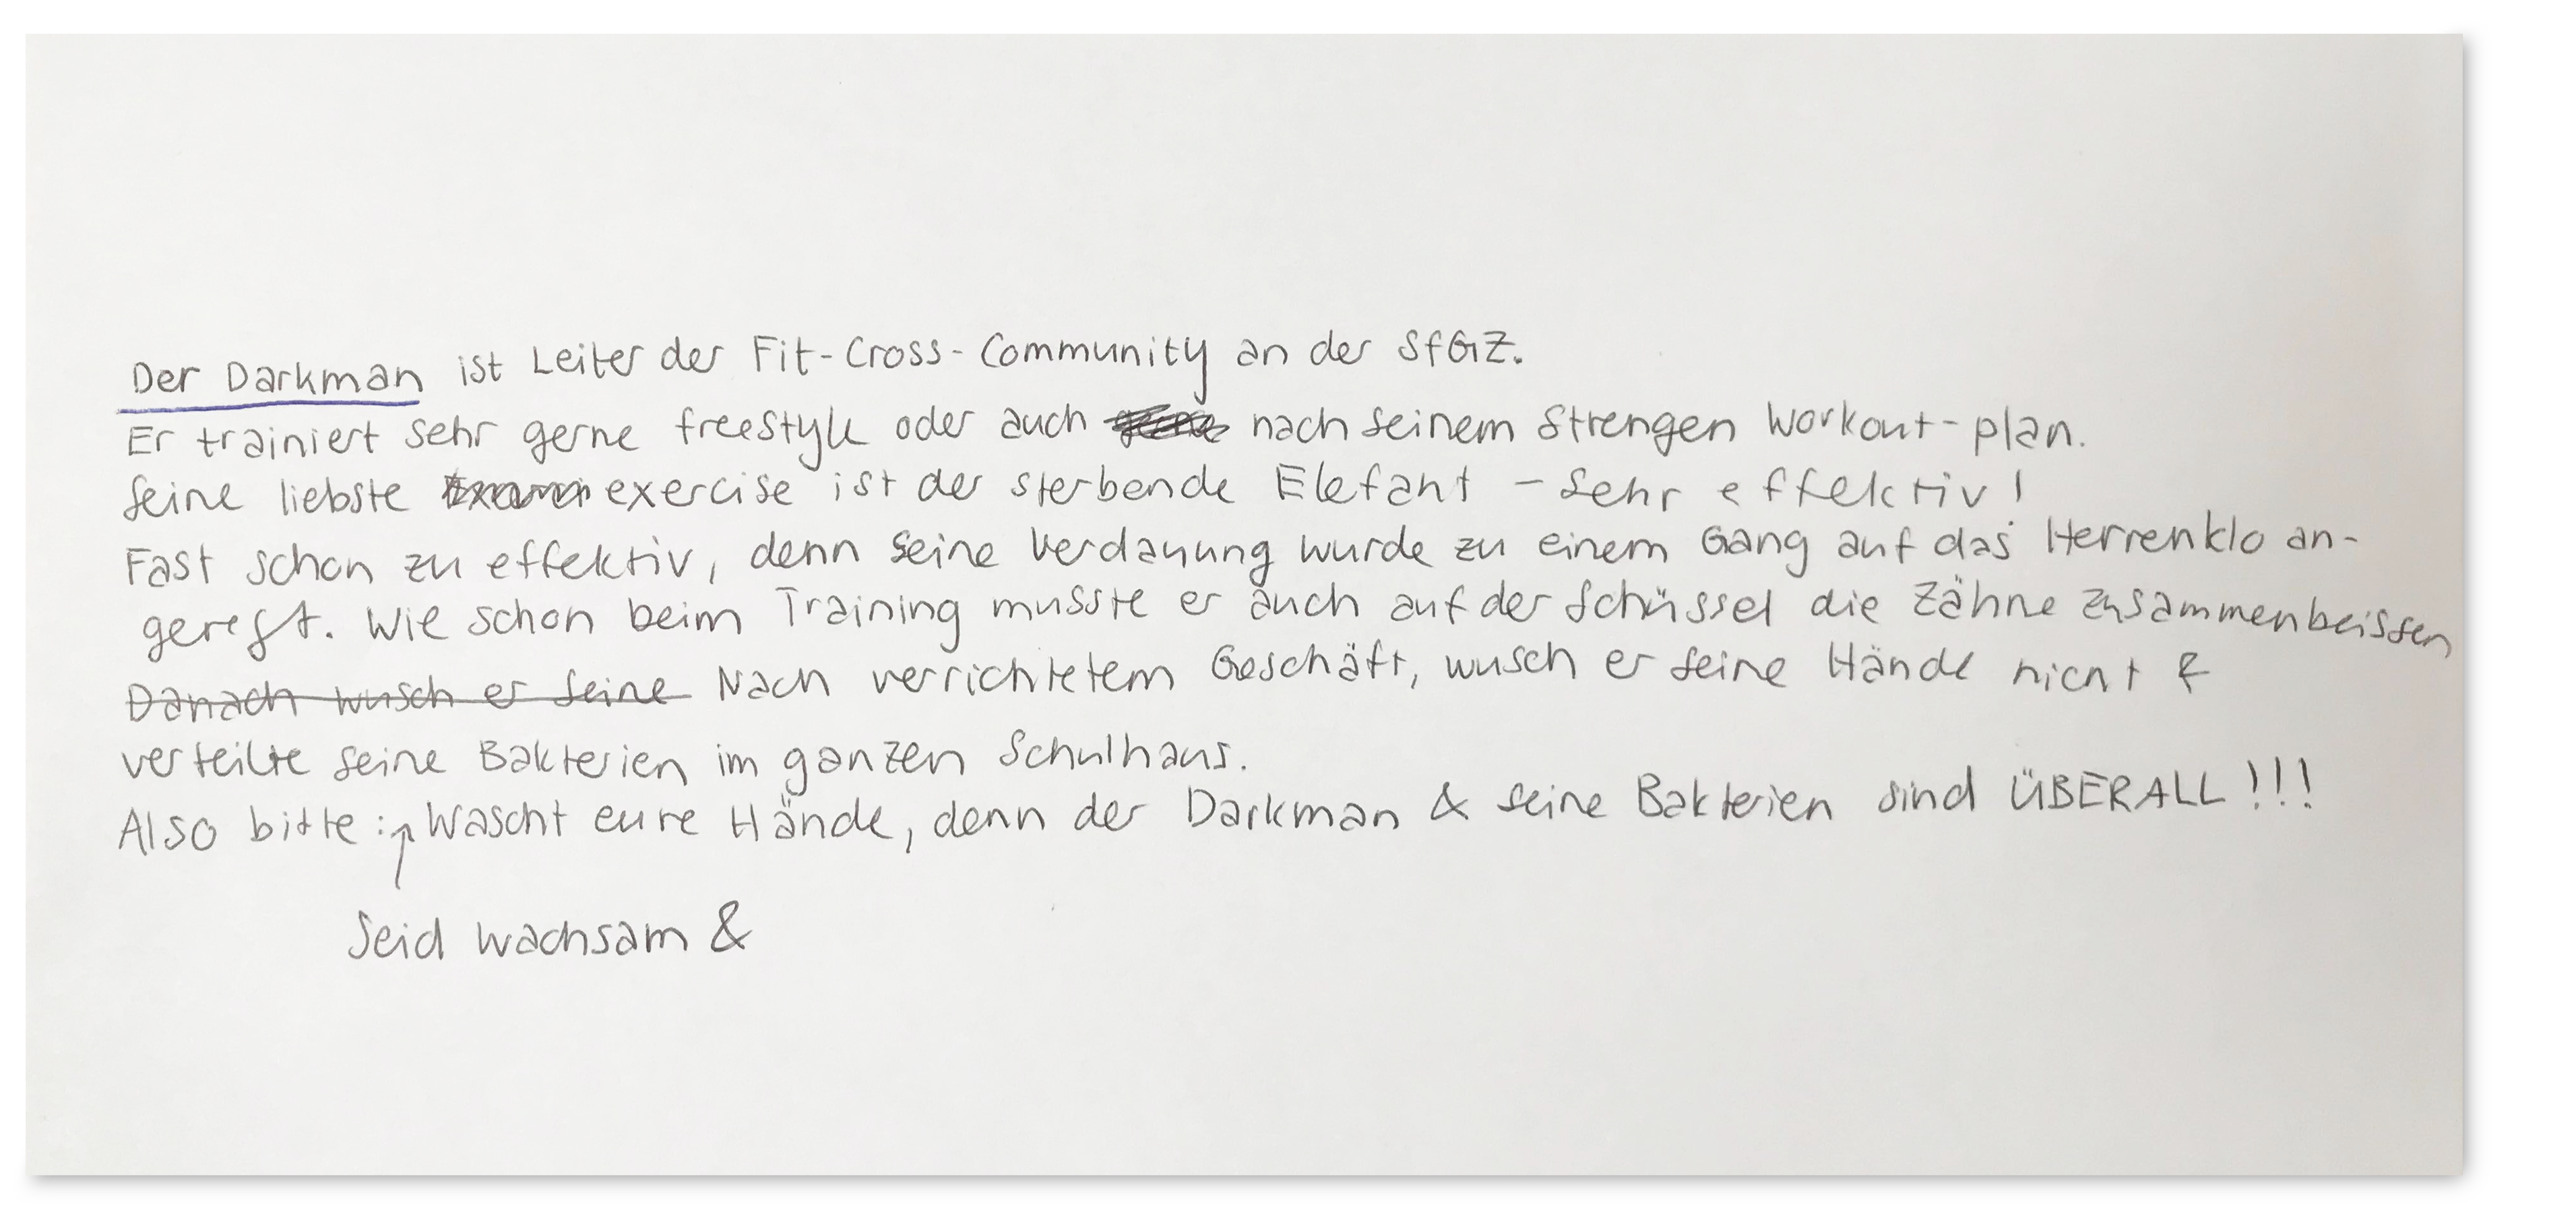 Der Darkman ist Leiter der Fit-Cross-Community an der SfGZ.
Er trainiert sehr gerne freestyle oder auch nach seinem strengen Workout-plan.
Seine liebste exercise ist der sterbende Elefant – sehr effektiv!
Fast schon zu effektiv, denn seine Verdauung wurde zu einem Gang auf das Herrenklo an-
geregt. Wie schon beim Training musste er auch auf der Schüssel die Zähne zusammenbeissen
Danach wusch er seine Nach verrichtetem Geschäft, wusch er seine Hände nicht &
verteilte seine Bakterien im ganzen Schulhaus.
Also bitte: Wascht eure Hände, denn der Darkman & seine Bakterien sind ÜBERALL!!!
Seid wachsam &